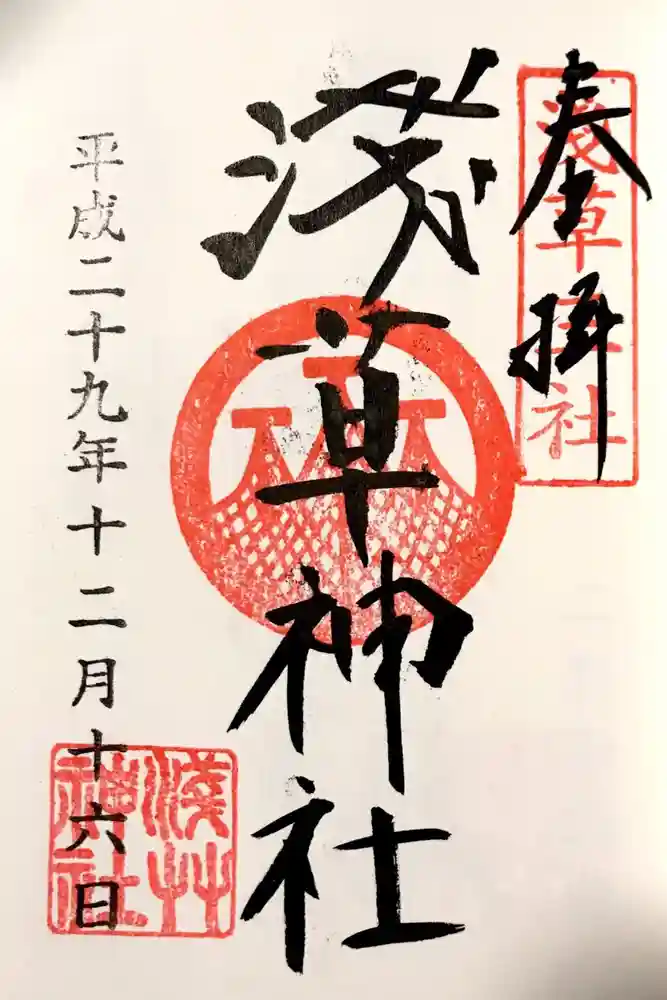 奉拝
淺草神社
淺草神社
平成二十九年十二月十六日
淺草
神社